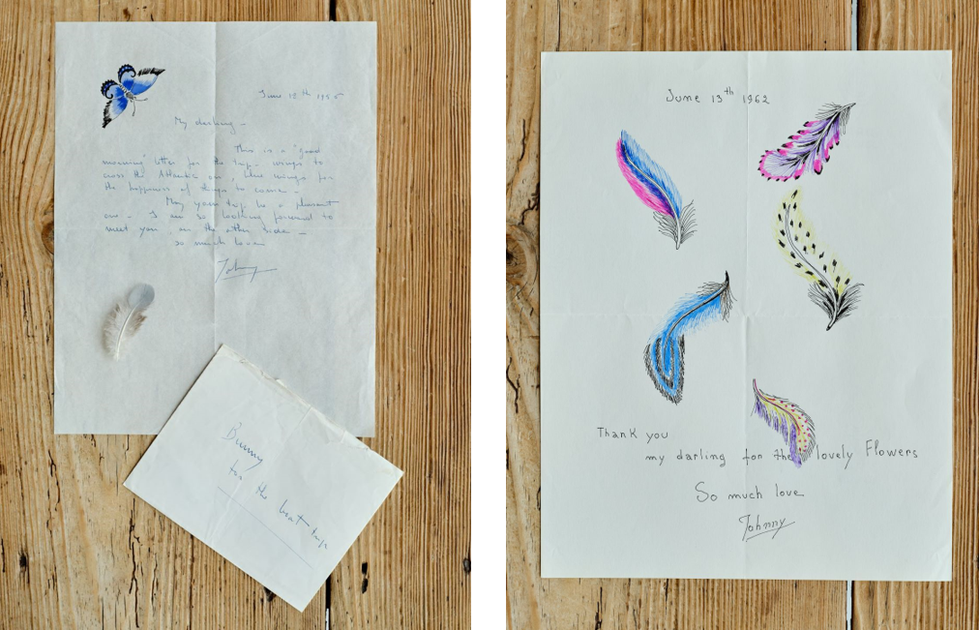 June 12th 195
My darling -
This is a "good
morning" letter for the trip - wings to
cross the Atlantic on, blue wings for
the happiness of things to come -
May your trip be a pleasant
one - I am so looking forward to
meet you on the other side -
so much love
Johnny
Bunny
for the boat trip
June 13th 1962
Thank you
my darling for the lovely Flowers
So much love
Johnny